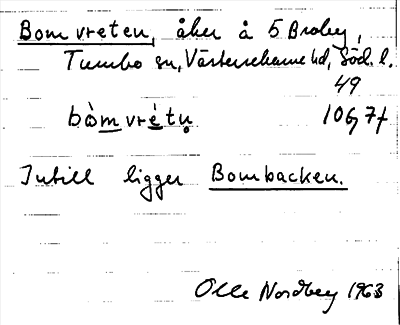 Bomvreten, åker å 5 Broby,
Tumbo sn, Västerrekarne hd, Söd. l.
49
bòmvrétṇ 106,7f
Intill ligger Bombacken.
Olle Nordberg 1963